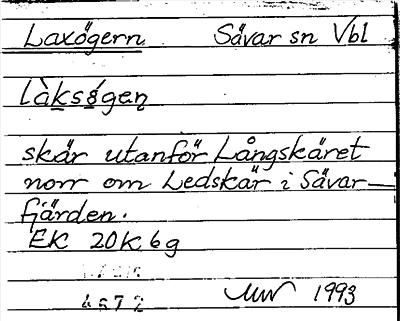 Laxögern Sävar sn Vbl
làksögen
skär utanför Långskäret
norr om Ledskär i Sävar-
fjärden.
EK 20K6g
4672
1993